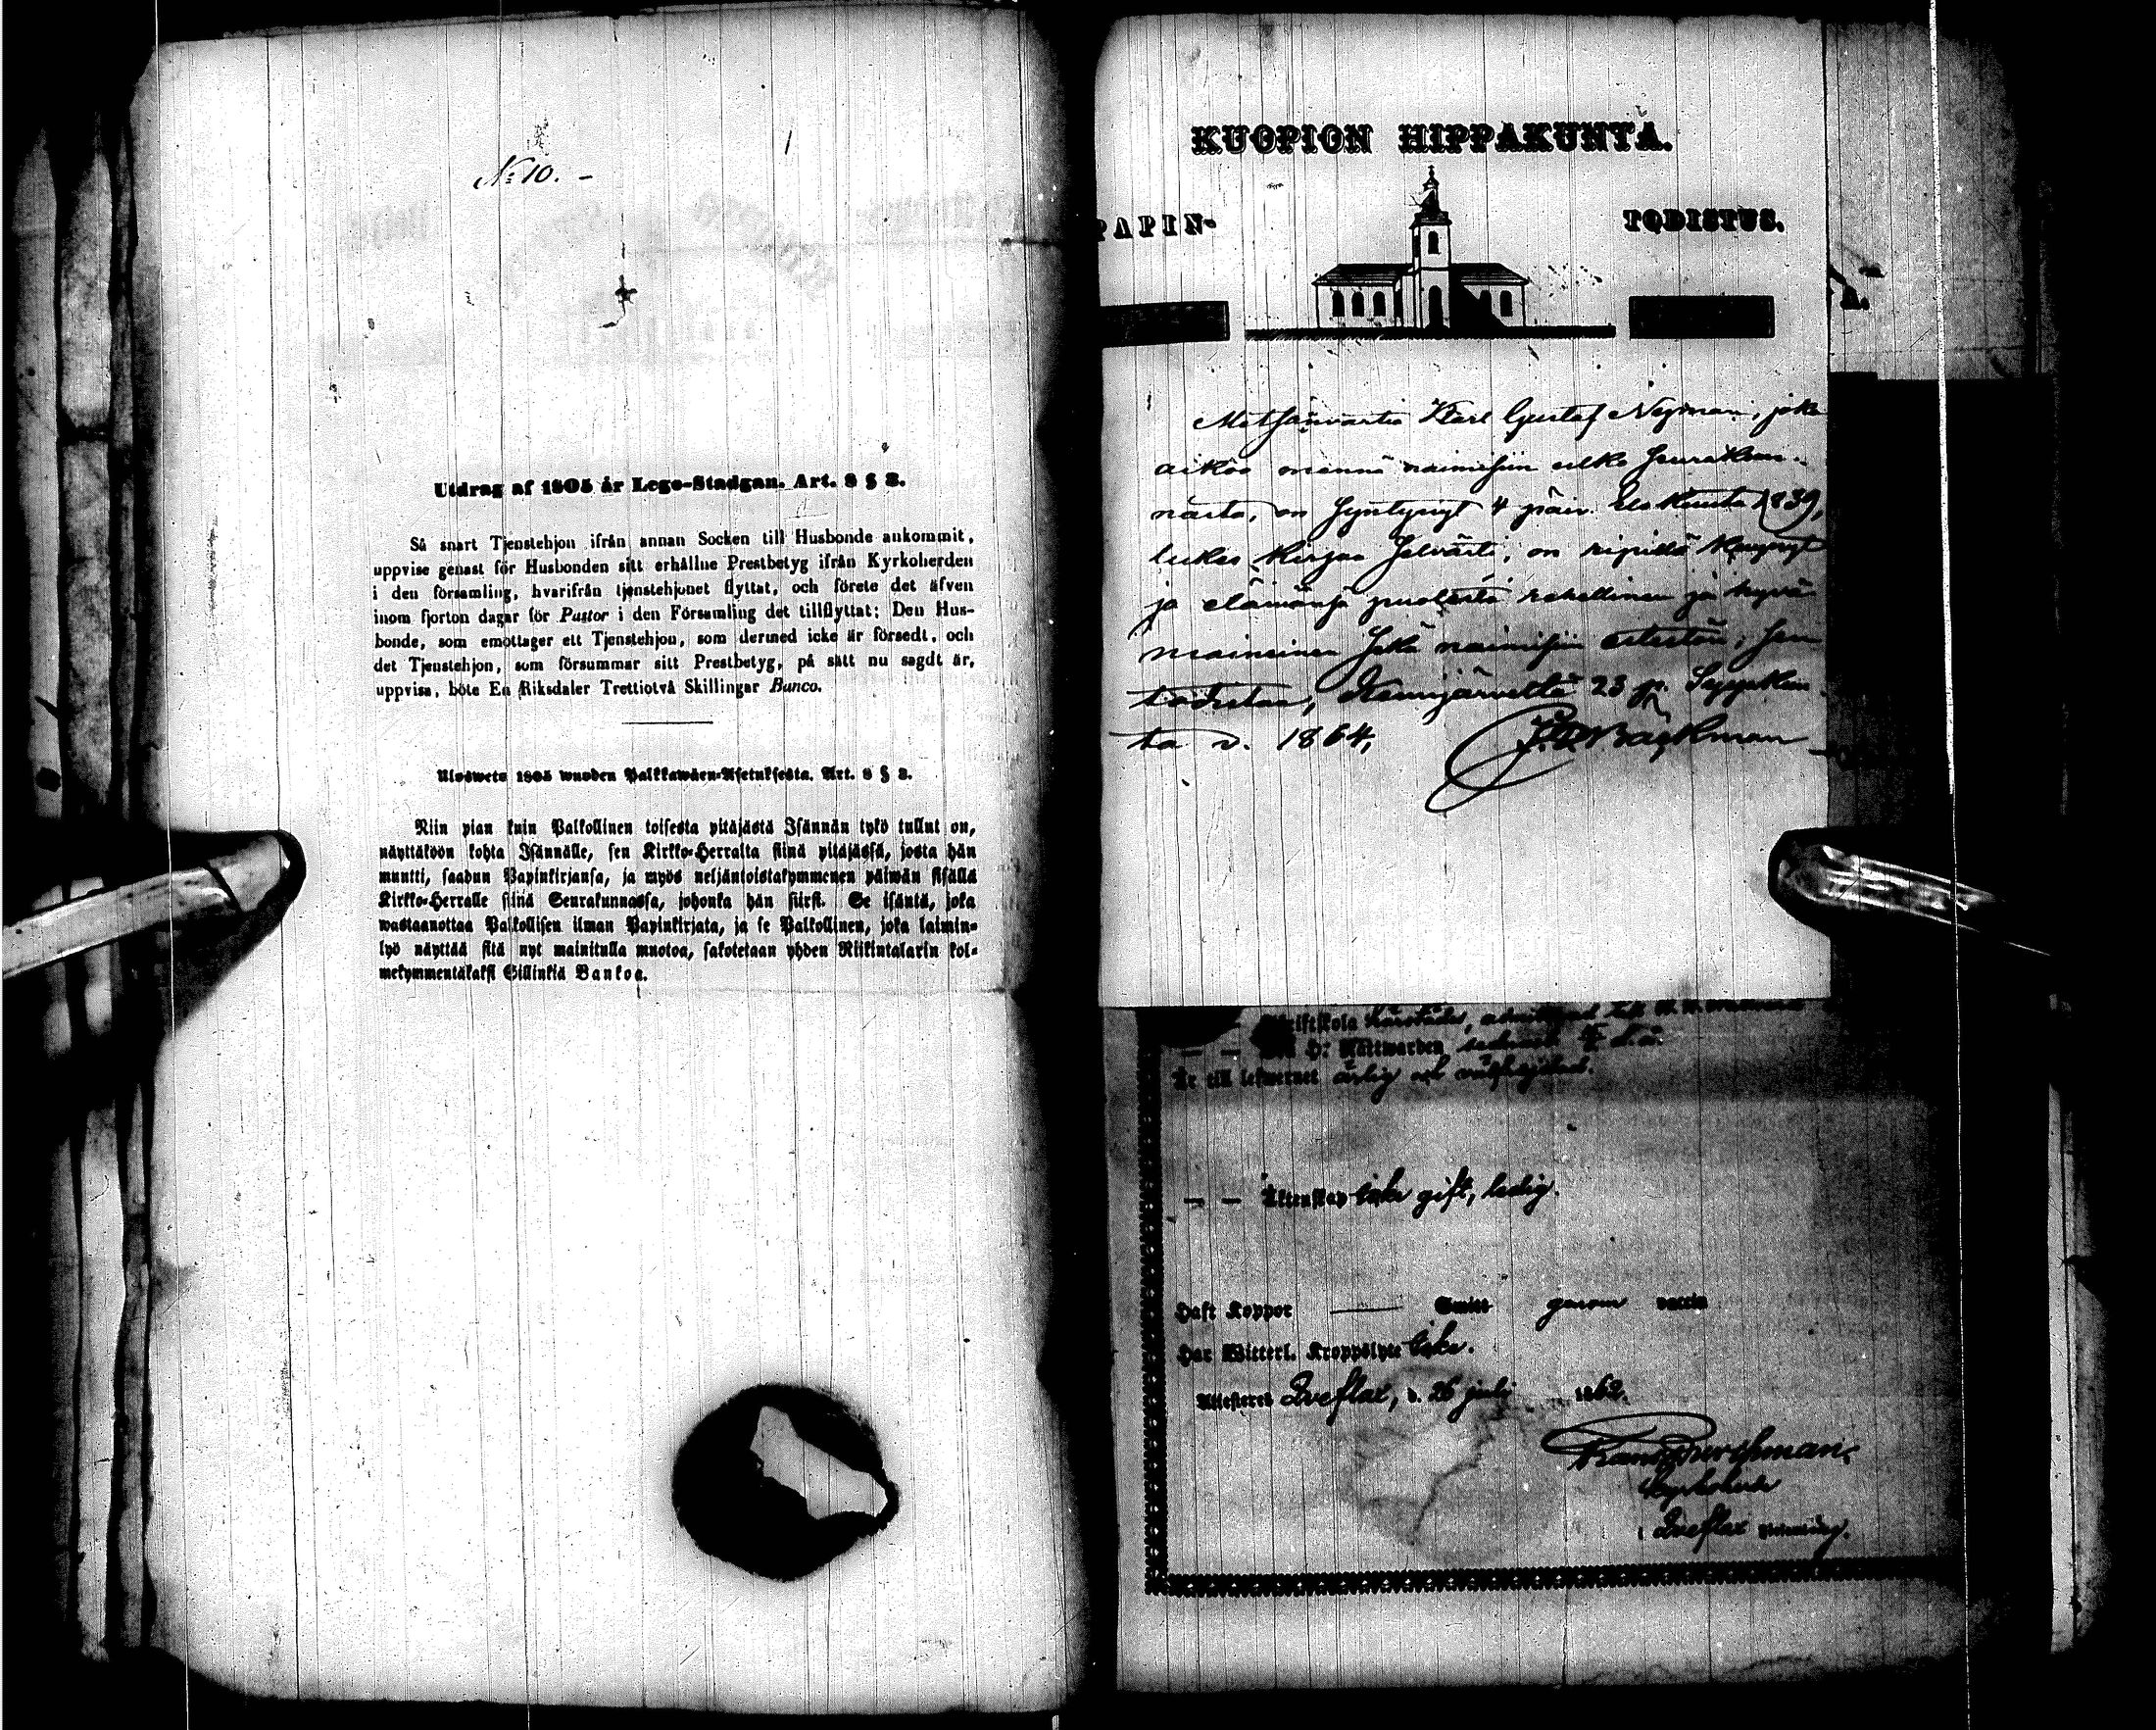 N:o 10. –
Utdrag af 1805 år Lego-Stadgan. Art. 8 § 3.
Så snart Tjenstehjon ifrån annan Socken till Husbonde ankommit,
uppvise genast för Husbonden sitt erhållne Prestbetyg ifrån Kyrkoherden
i den församling, hvarifrån tjenstehjonet flyttat, och förete det äfven
inom fjorton dagar för Pastor i den Församling det tillflyttat; Den Hus-
bonde, som emottager ett Tjenstehjon, som dermed icke är försedt, och
det Tjenstehjon, som försummar sitt Prestbetyg, på sätt nu sagdt är,
uppvisa, böte En Riksdaler Trettiotvå Skillingar Banco.
Ulosweto 1805 wuoden Palkkawäen-Asetuksesta. Art. 8 § 3.
Niin pian kuin Palkollinen toisesta pitäjästä Isännän tykö tullut on,
näyttäköön kohta Isännälle, sen Kirkko-Herralta siinä pitäjässä, josta hän
muutti, saadun Papinkirjansa, ja myös neljäntoistakymmenen päiwän sisällä
Kirkko-Herralle siinä Seurakunnassa, johonka hän siirsi. Se isäntä, joka
wastaanottaa Palkollisen ilman Papinkirjata, ja se Palkollinen, joka laimin-
lyö näyttää sitä nyt mainitulla muotoa, sakotetaan yhden Riikintalarin kol-
mekymmentäkaksi Sillinkiä Bankoa.
KUOPION HIPPAKUNTA.
PAPIN- TODISTUS.
Metsänvartia Karl Gustaf Nyman, joka
aikoo mennä naimisiin ulko seurakun-
nasta, on syntynyt 4 päiv. Elokuuta 1839,
lukee kirjaa selvästi, on ripillä käynyt
ja elämänsä puolesta rehellinen ja hyvä
maineinen sekä naimisiin esteetön; sen
todistaa, Kemijärveltä 23 p. Syyskuu-
ta v. 1864,
Bäckman
Skriftskola
H: Nattwarden
Är till lefwernet ärlig och
— — Äktenskap icke gift, ledig.
Haft Koppor — Smitt genom vaccin
Har Witterl. Kroppslyte icke.
Attesteras Qveflax, d. 26 juli 1862.
Kyrkoherde
i Qveflax församling.